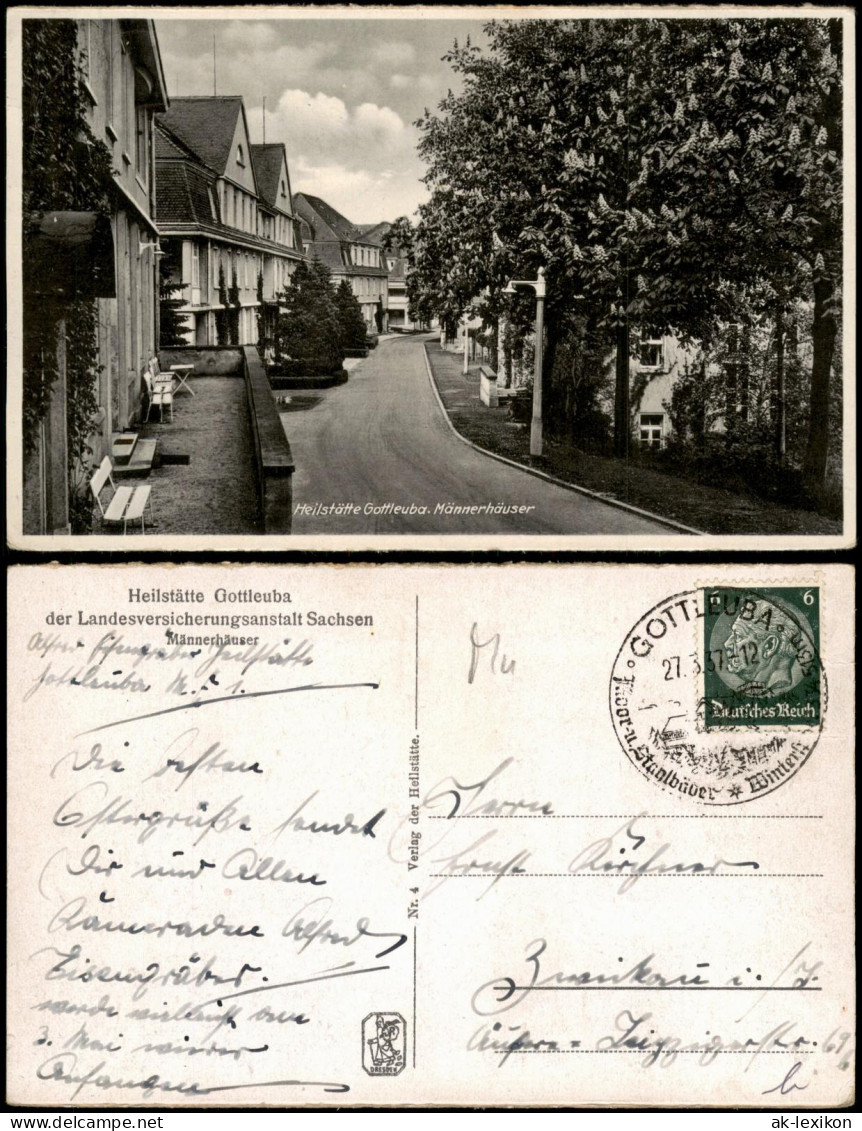 Heilstätte Gottleuba. Männerhäuser
Heilstätte Gottleuba
der Landesversicherungsanstalt Sachsen
Männerhäuser
Alfred Eisengräber Heilstätte
Gottleuba M. 1.
Die besten
Ostergrüße sendet
Dir und Allen
Kameraden Alfred
Eisengräber.
werde vielleicht am
3. Mai wieder
Anfangen
Nr. 4 Verlag der Heilstätte.
DRESDEN
GOTTLEUBA
27.3.37 12
Moor- u. Stahlbäder
6 6
Deutsches Reich
Herrn
Ernst Kirchner
Zwickau i./S.
Äußere-Leipzigerstr. 69
ak-lexikon.de
ak-lexikon